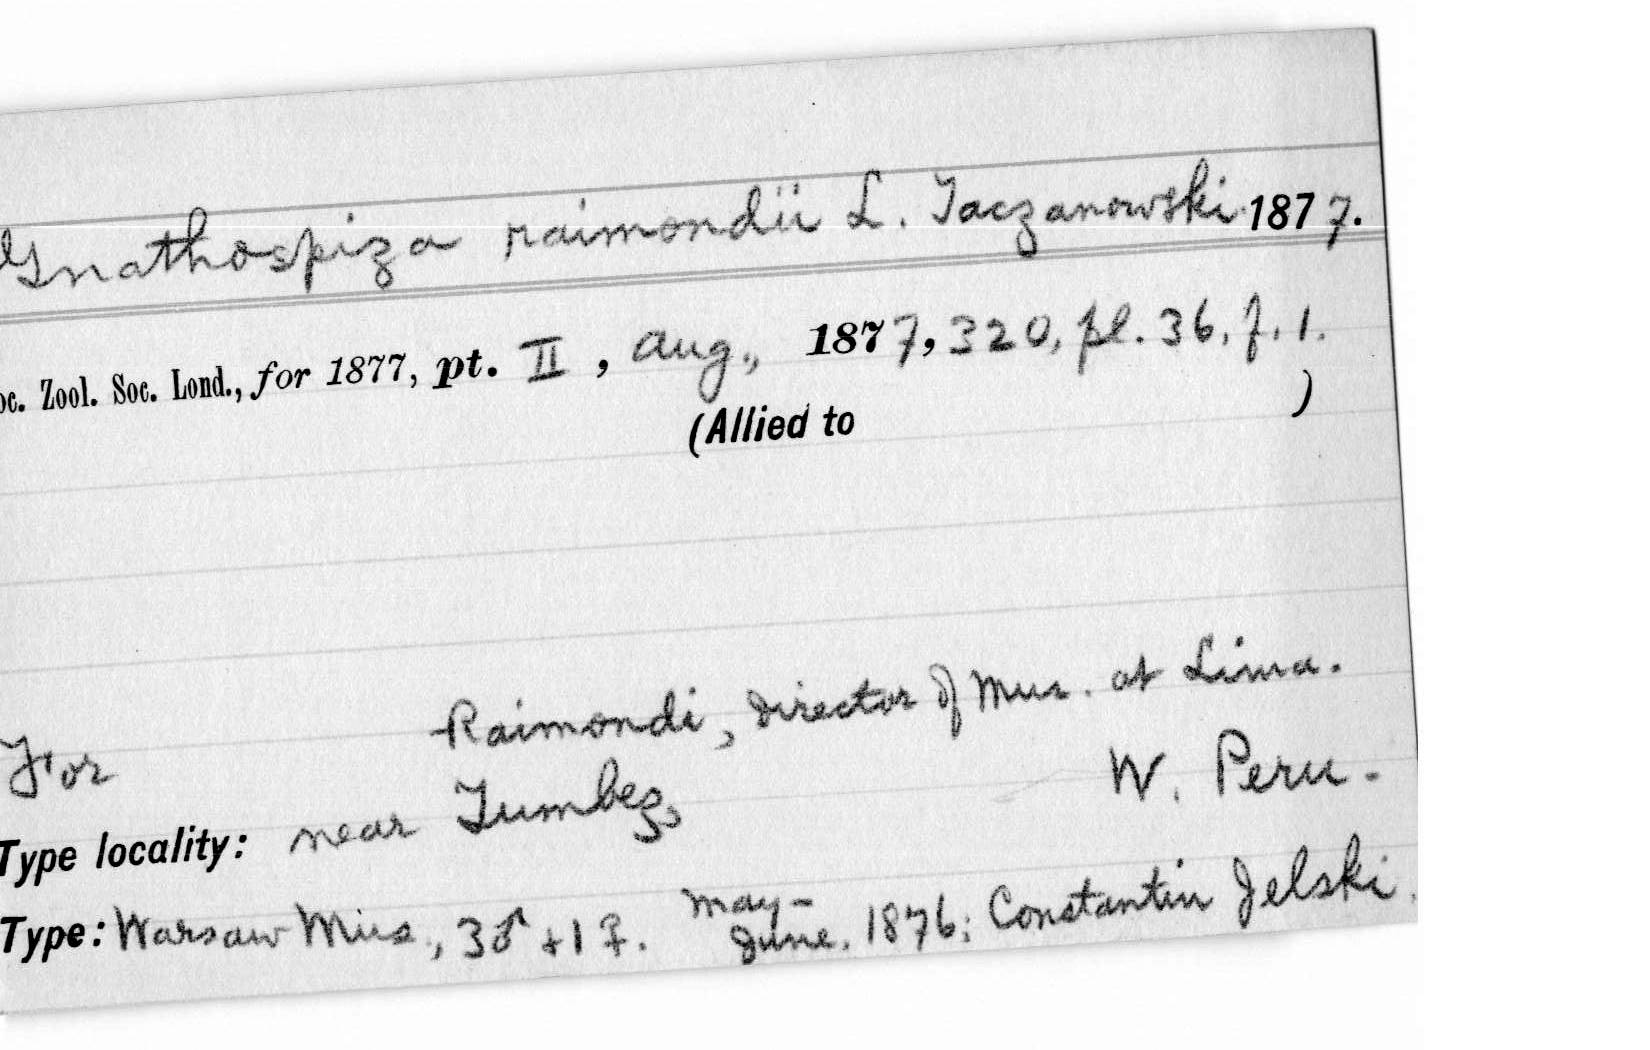 Gnathospiza raimondii L. Taczanowski 1877.
oc. Zool. Soc. Lond., for 1877, pt. II, Aug., 1877, 320, pl. 36, f. 1.
(Allied to )
For Raimondi, Director of Mus. at Lima.
Type locality: near Tumbez, W. Peru.
Type: Warsaw Mus., 3♂ + 1♀. May-June, 1876; Constantin Jelski.